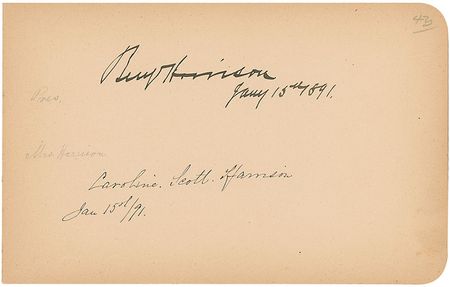 43
Benj Harrison
Jany 15th 1891.
Pres.
Mrs Harrison
Caroline. Scott. Harrison
Jan 15th/91.